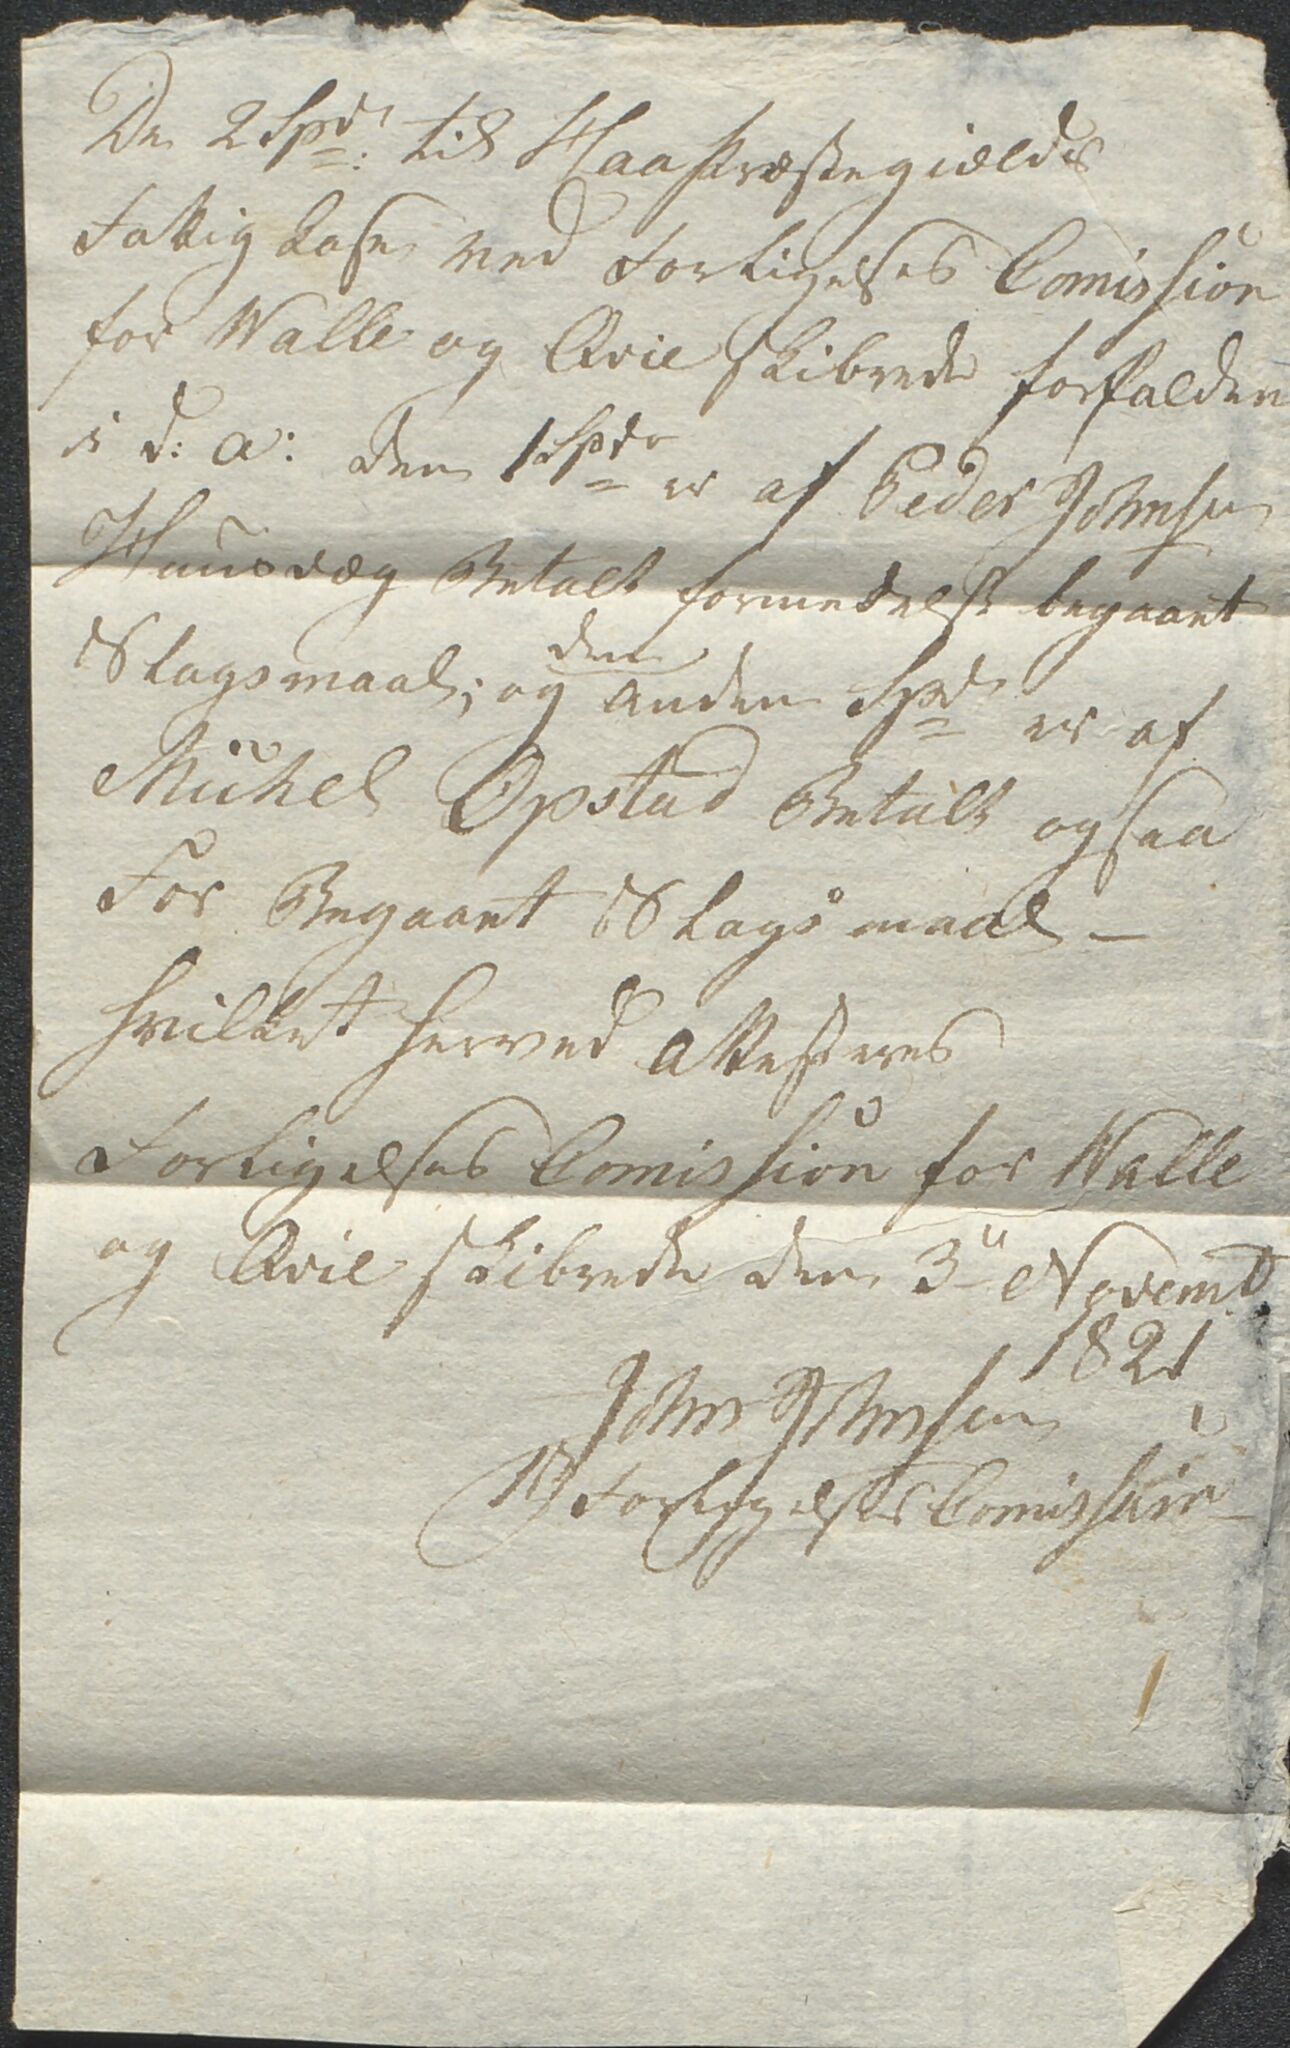 De 2 Spd: til Haa Præstegiælds
Fattig Kase ved Forligelses Comission
for Walle og Qvie skibrede forfalden
i d: a: den 1 Spdr er af Peder Johnsen
Huusvæg Betalt formedelst begaaet
Slagsmaal; og den anden Spd er af
Michel Opstad Betalt ogsaa
For Begaaet Slagsmaal –
hvilket herved Attesteres
Forligelses Comission for Walle
og Qvie skibrede den 3 Novemb
1821
John Johnsen
Forligelses Comissair